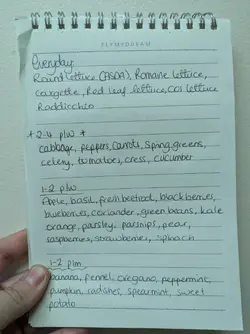 FLYMYDREAM
Everyday:
Round lettuce (ASDA), Romaine lettuce,
Courgette, Red leaf lettuce, cos lettuce
Raddicchio
* 2-4 p/w *
Cabbage, peppers, Carrots, Spring greens,
celery, tomatoes, cress, cucumber
1-2 p/w
Apple, basil, fresh beetroot, blackberries,
blueberries, coriander, green beans, kale
orange, parsley, parsnips, pear,
raspberries, strawberries, spinach
1-2 p/m
banana, fennel, oregano, peppermint,
pumpkin, radishes, spearmint, sweet
potato